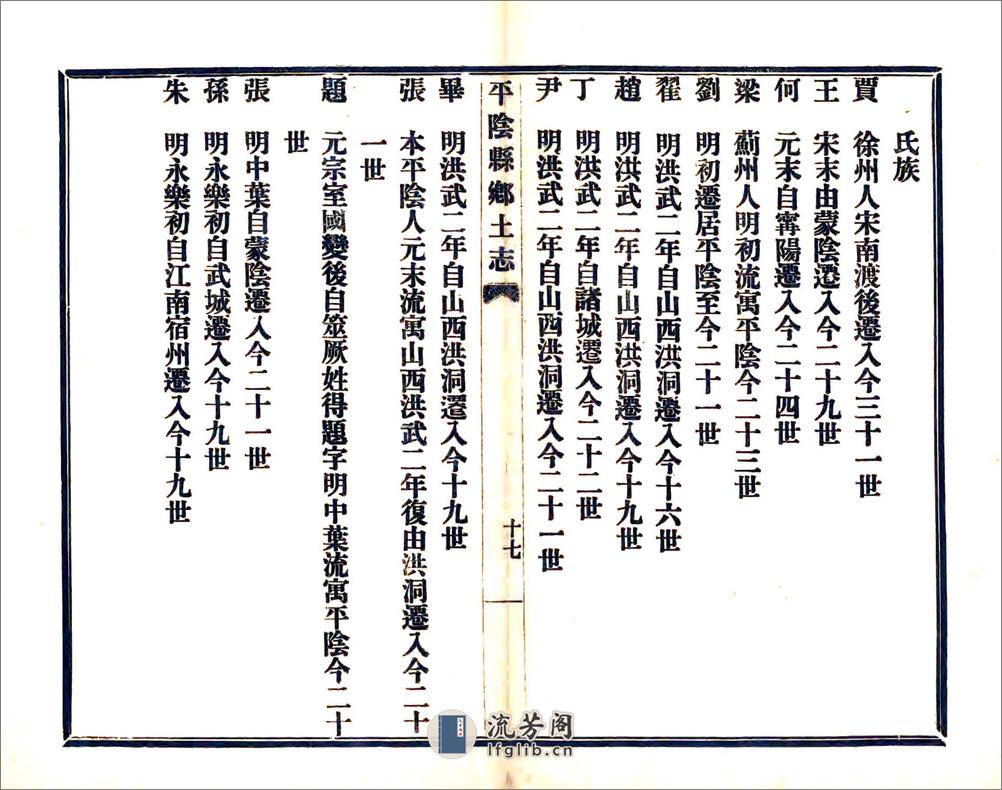 氏族
賈　徐州人宋南渡後遷入今三十一世
王　宋末由蒙陰遷入今二十九世
何　元末自甯陽遷入今二十四世
梁　薊州人明初流寓平陰今二十三世
劉　明初遷居平陰至今二十一世
翟　明洪武二年自山西洪洞遷入今十六世
趙　明洪武二年自山西洪洞遷入今十九世
丁　明洪武二年自諸城遷入今二十二世
尹　明洪武二年自山西洪洞遷入今二十一世
平陰縣鄉土志
十七
畢　明洪武二年自山西洪洞遷入今十九世
張　本平陰人元末流寓山西洪武二年復由洪洞遷入今二十
一世
題　元宗室國變後自筮厥姓得題字明中葉流寓平陰今二十
世
張　明中葉自蒙陰遷入今二十一世
孫　明永樂初自武城遷入今十九世
朱　明永樂初自江南宿州遷入今十九世
流芳阁
lfglib.cn